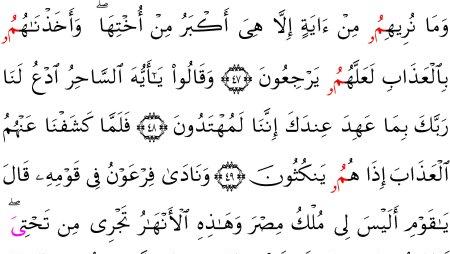 وَمَا نُرِيهِمُۥ مِنْ ءَايَةٍ إِلَّا هِىَ أَكْبَرُ مِنْ أُخْتِهَاۖ وَأَخَذْنَٰهُمُۥ
بِالْعَذَابِ لَعَلَّهُمُۥ يَرْجِعُونَ ﴿٤٧﴾ وَقَالُوا۟ يَٰٓأَيُّهَ السَّاحِرُ ادْعُ لَنَا
رَبَّكَ بِمَا عَهِدَ عِندَكَ إِنَّنَا لَمُهْتَدُونَ ﴿٤٨﴾ فَلَمَّا كَشَفْنَا عَنْهُمُ
الْعَذَابَ إِذَا هُمُۥ يَنكُثُونَ ﴿٤٩﴾ وَنَادَىٰ فِرْعَوْنُ فِى قَوْمِهِۦ قَالَ
يَٰقَوْمِ أَلَيْسَ لِى مُلْكُ مِصْرَ وَهَٰذِهِ الْأَنْهَٰرُ تَجْرِى مِن تَحْتِىَۖ